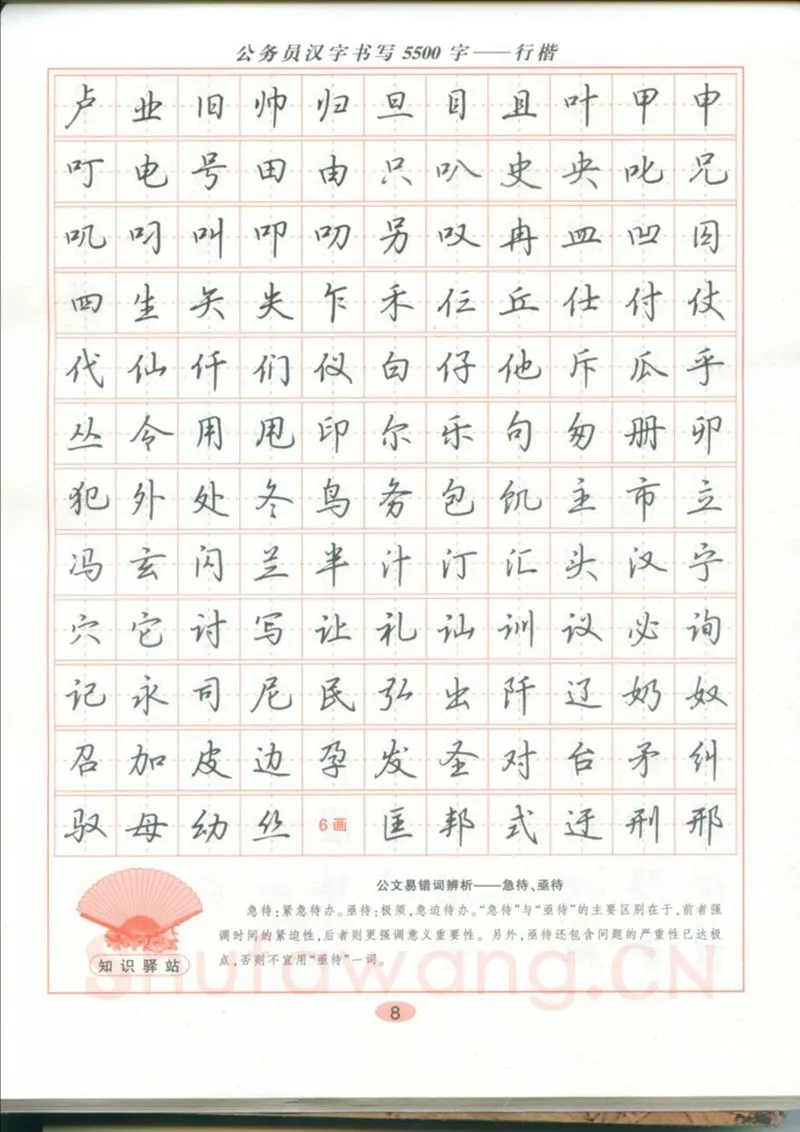 公务员汉字书写5500字——行楷
卢业旧帅归旦目且叶甲申
叮电号田由只叭史央叱兄
叽叼叫叩叨另叹冉皿凹囚
四生矢失乍禾仨丘仕付仗
代仙仟们仪白仔他斥瓜乎
丛令用甩印尔乐句匆册卯
犯外处冬鸟务包饥主市立
冯玄闪兰半汁汀汇头汉宁
穴它讨写让礼讪训议必询
记永司尼民弘出阡辽奶奴
召加皮边孕发圣对台矛纠
驭母幼丝6画匡邦式迂刑邢
公文易错词辨析——急待、亟待
急待:紧急待办。亟待:极须,急迫待办。“急待”与“亟待”的主要区别在于,前者强
调时间的紧迫性,后者则更强调意义重要性。另外,亟待还包含问题的严重性已达极
点,否则不宜用“亟待”一词。
知识驿站
Shufawang.CN
8